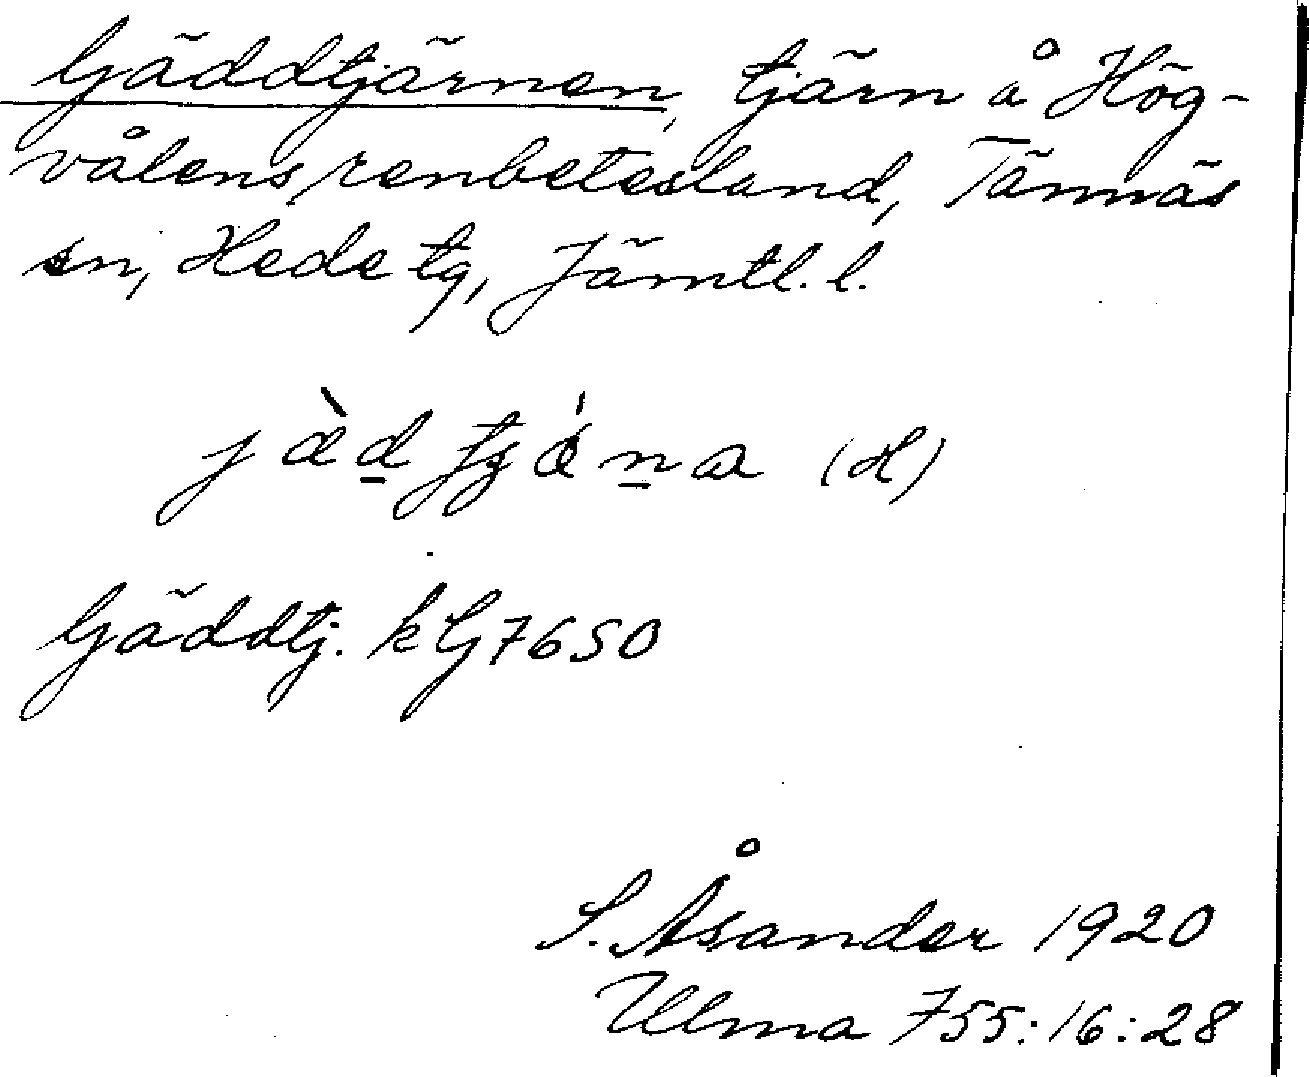 Gäddtjärnen, tjärn å Hög-
vålens renbetesland, Tännäs
sn, Hede tg, Jämtl. l.
(H)
Gäddtj. kG7650
S. Åsander 1920
Ulma 755:16:28